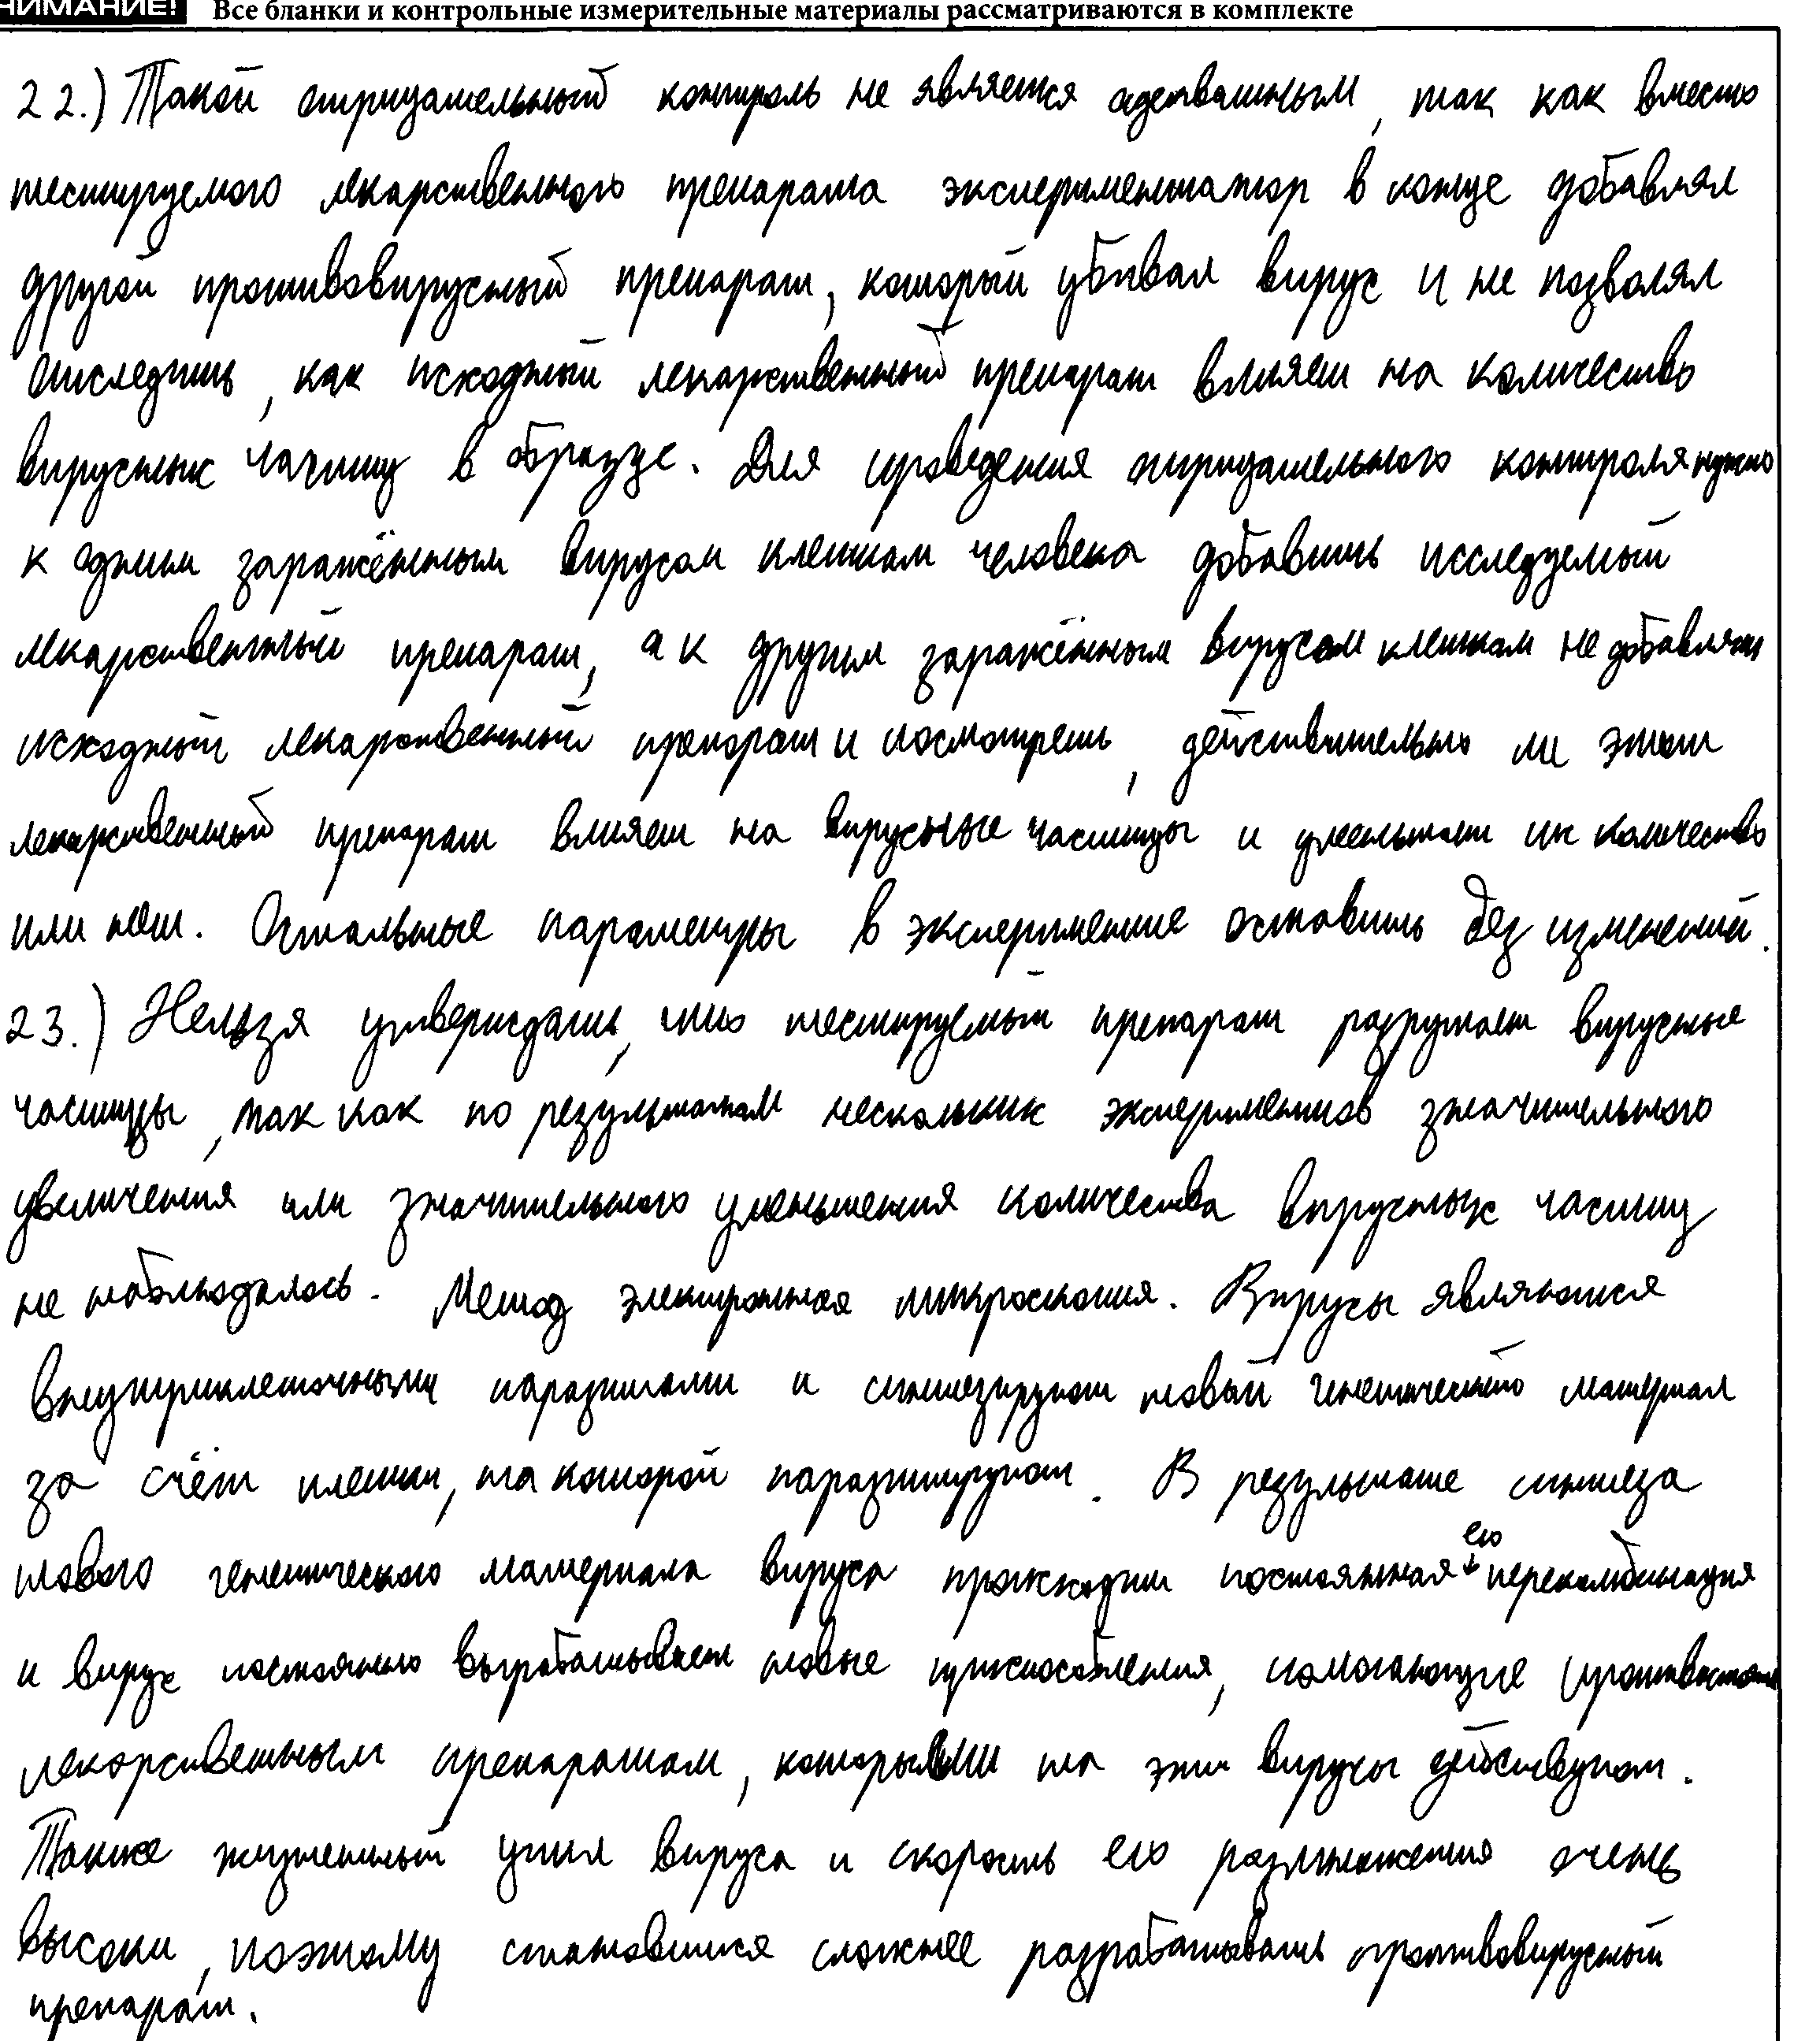 НИМАНИЕ! Все бланки и контрольные измерительные материалы рассматриваются в комплекте
22.) Такой отрицательный контроль не является адекватным, так как вместо
тестируемого лекарственного препарата экспериментатор в конце добавлял
другой противовирусный препарат, который убивал вирус и не позволял
отследить, как исходный лекарственный препарат влияет на количество
вирусных частиц в образце. Для проведения отрицательного контроля нужно
к одним заражённым вирусом клеткам человека добавить исследуемый
лекарственный препарат, а к другим заражённым вирусом клеткам не добавлять
исходный лекарственный препарат и посмотреть, действительно ли этот
лекарственный препарат влияет на вирусные частицы и уменьшает их количество
или нет. Остальные параметры в эксперименте оставить без изменений.
23.) Нельзя утверждать, что тестируемый препарат разрушает вирусные
частицы, так как по результатам нескольких экспериментов значительного
увеличения или значительного уменьшения количества вирусных частиц
не наблюдалось. Метод электронная микроскопия. Вирусы являются
внутриклеточными паразитами и синтезируют новый генетический материал
за счёт клетки, на которой паразитируют. В результате синтеза
нового генетического материала вируса происходит постоянная его перекомбинация
и вирус постоянно вырабатывает новые приспособления, помогающие противостоять
лекарственным препаратам, которыми на эти вирусы действуют.
Также жизненный цикл вируса и скорость его размножения очень
высоки, поэтому становится сложнее разрабатывать противовирусный
препарат.